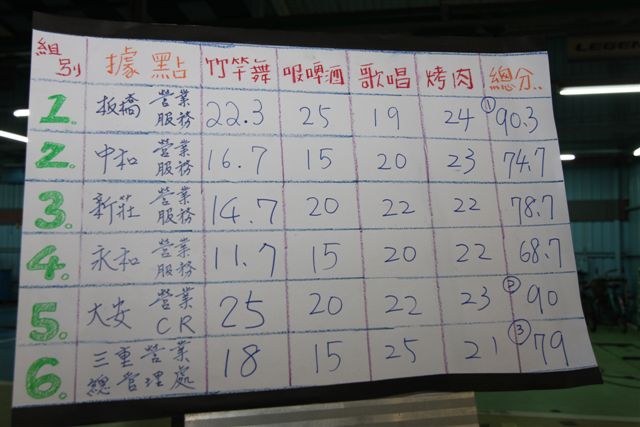 組別 據點 竹竿舞 喝啤酒 歌唱 烤肉 總分..
1. 板橋 營業服務 22.3 25 19 24 ① 90.3
2. 中和 營業服務 16.7 15 20 23 74.7
3. 新莊 營業服務 14.7 20 22 22 78.7
4. 永和 營業服務 11.7 15 20 22 68.7
5. 大安 營業CR 25 20 22 23 ② 90
6. 三重營業總管理處 18 15 25 21 ③ 79